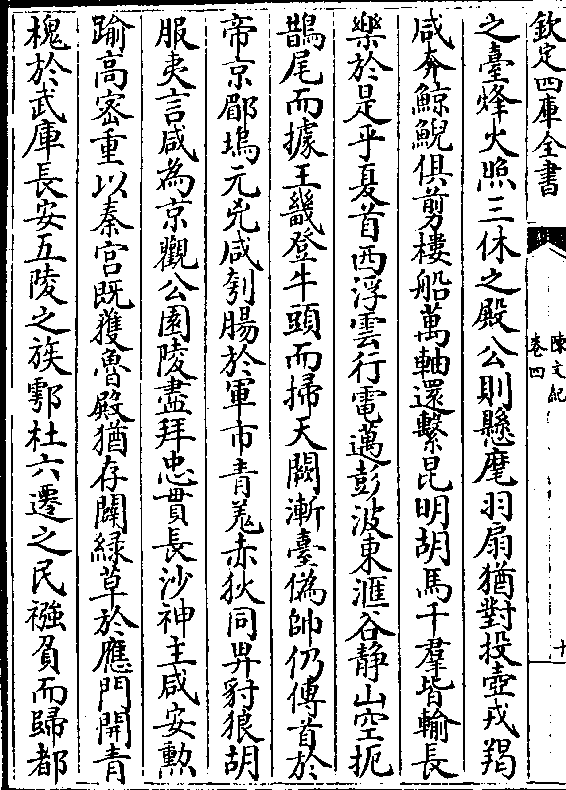 欽定四庫全書
陳文紀
卷四
十
之臺烽火照三休之殿公則懸麾羽扇猶對投壺戎羯
咸奔鯨鯢俱剪樓船萬軸還繫昆明胡馬千羣皆輸長
樂於是乎夏首西浮雲行電邁彭波東滙谷静山空扼
鵲尾而據王畿登牛頭而掃天闕漸臺偽帥仍傳首於
帝京郿塢元兇咸刳腸於軍市青羗赤狄同畀豺狼胡
服夷言咸為京觀公園陵盡拜忠貫長沙神主咸安勲
踰高密重以秦宫既獲魯殿猶存闢緑草於應門開青
槐於武庫長安五陵之族鄠杜六遷之民襁負而歸都